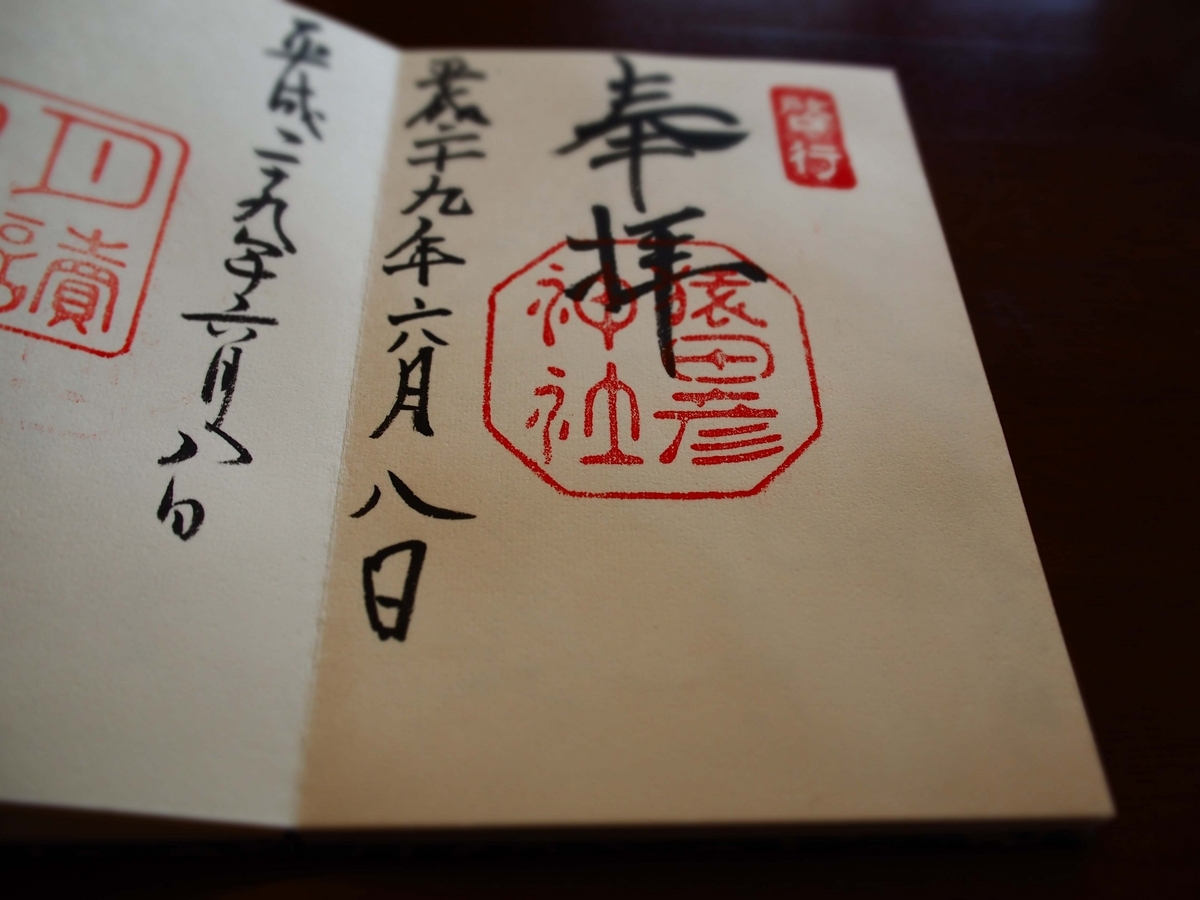 啓行
奉拝
猿田彦
神社
平成二十九年六月八日
平成二十九年六月八日